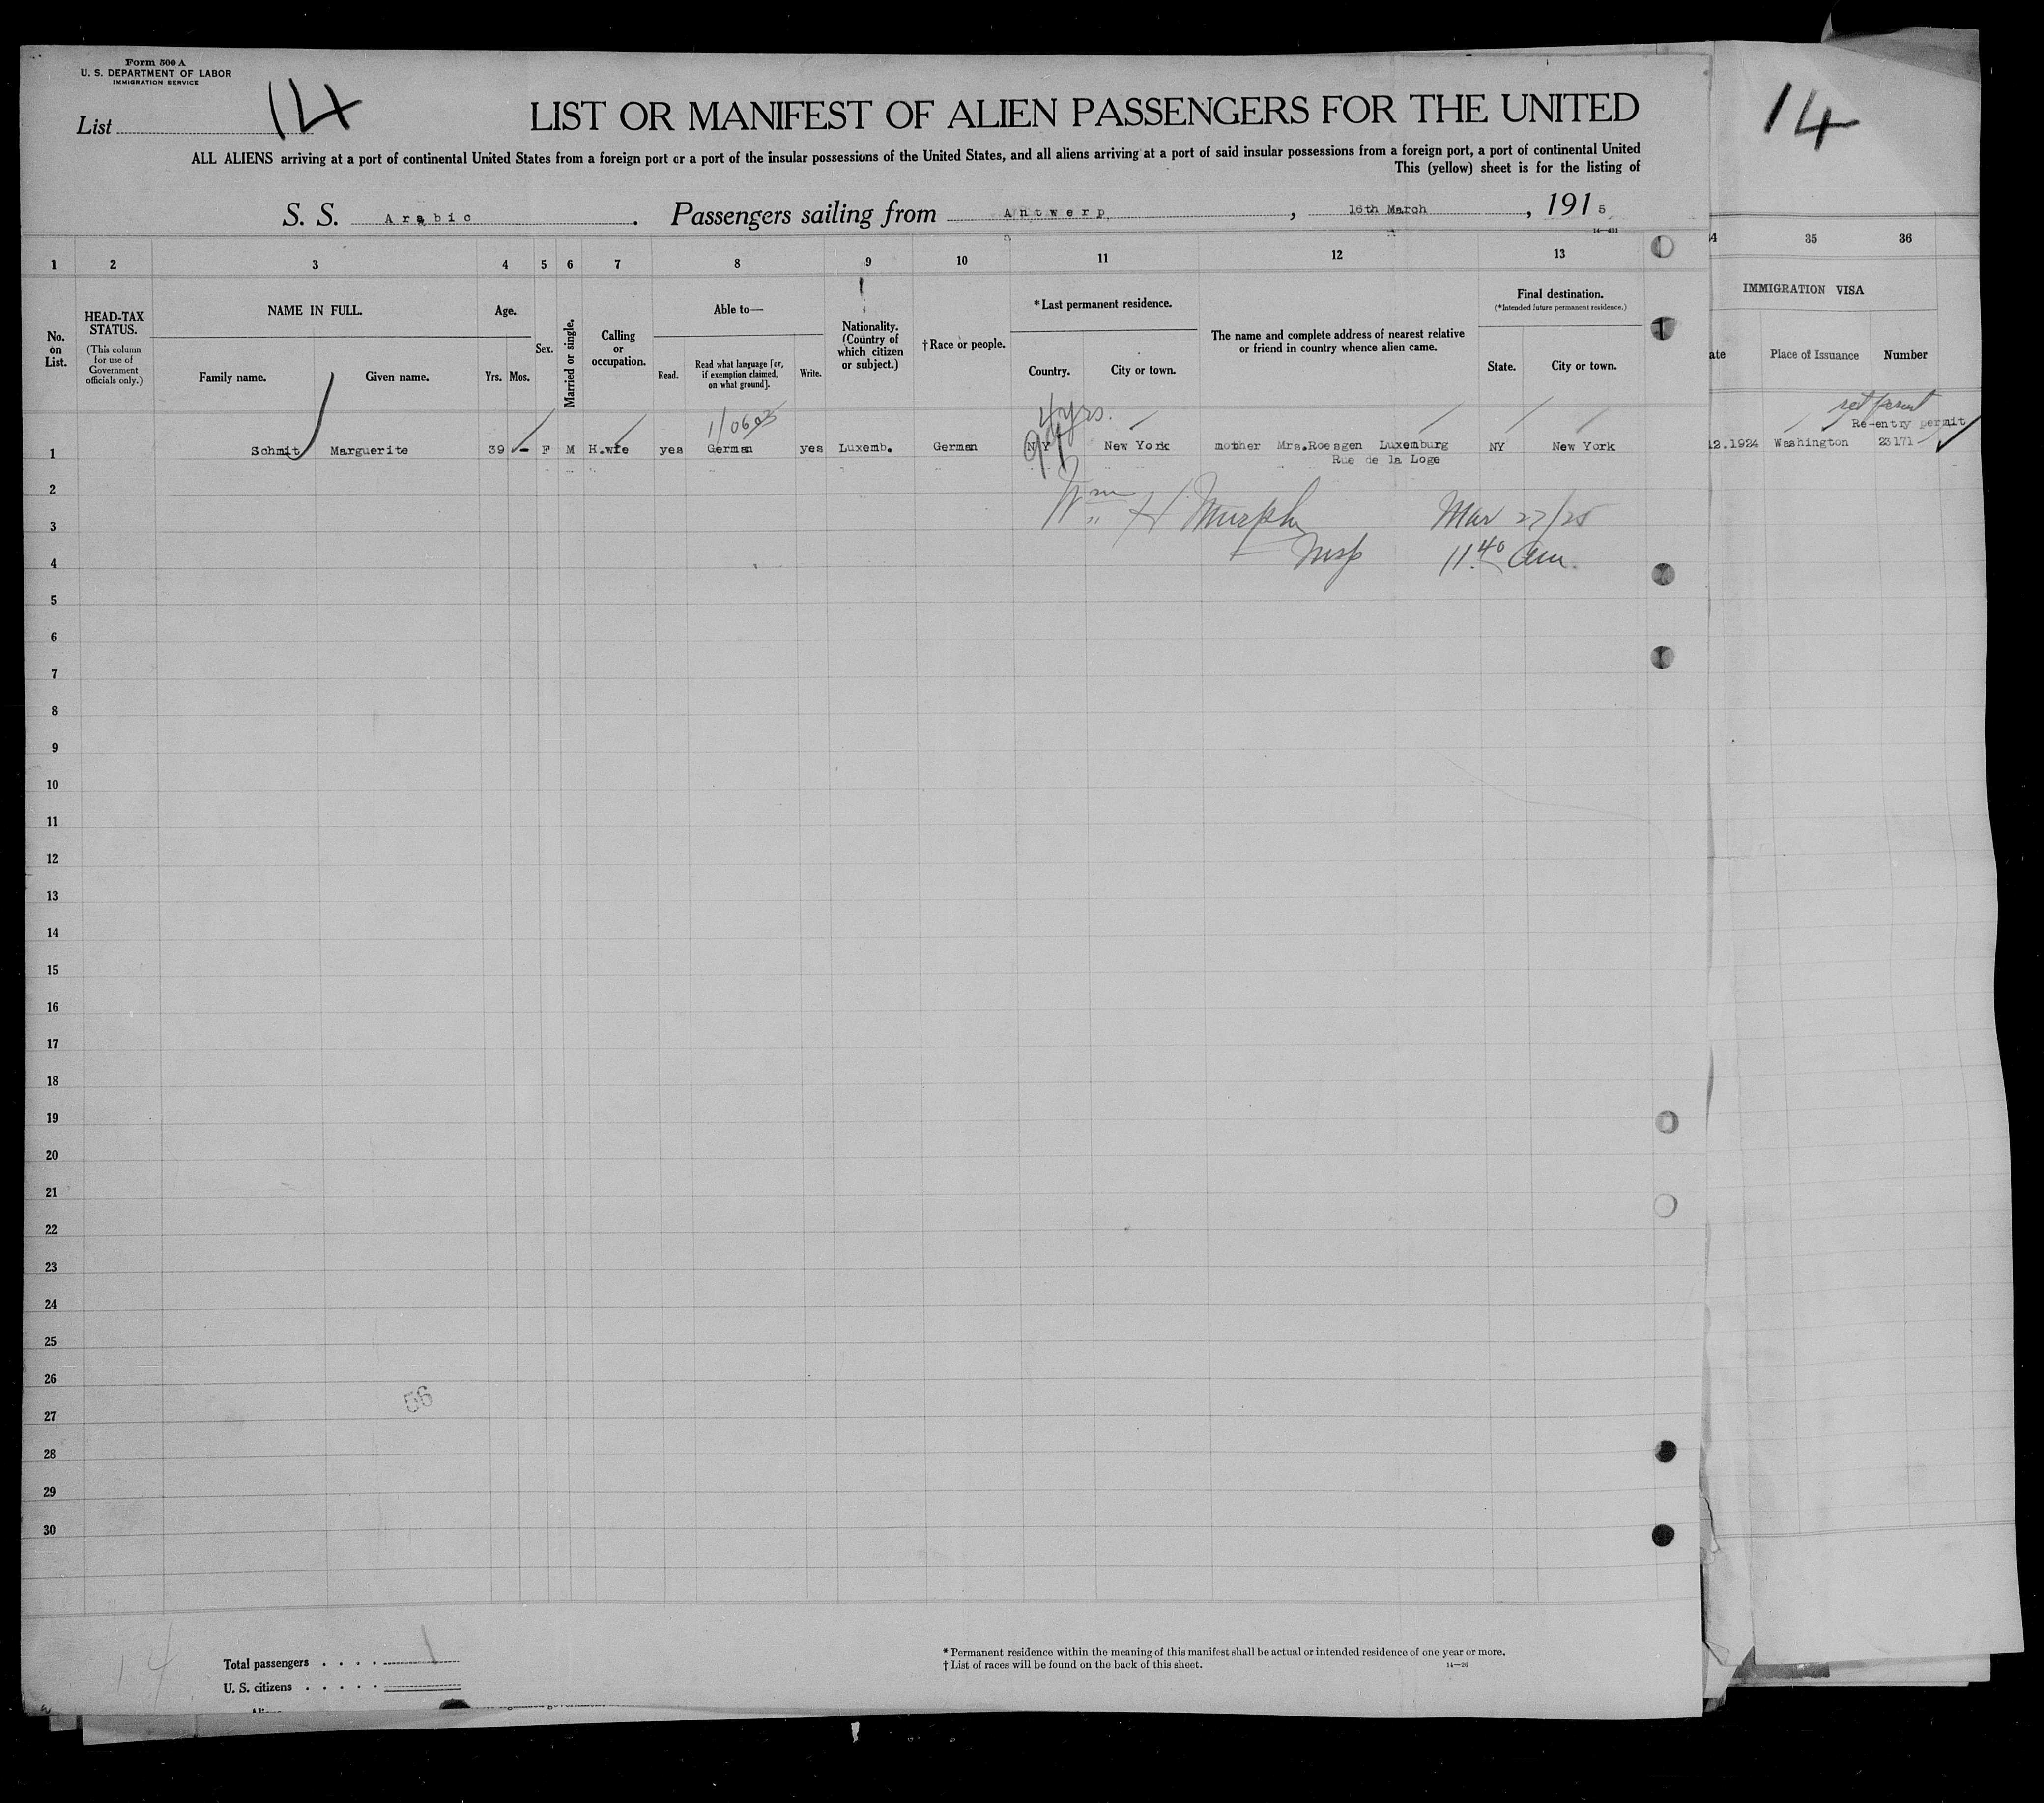 Form 500 A
U. S. DEPARTMENT OF LABOR
IMMIGRATION SERVICE
List 14
LIST OR MANIFEST OF ALIEN PASSENGERS FOR THE UNITED
14
ALL ALIENS arriving at a port of continental United States from a foreign port or a port of the insular possessions of the United States, and all aliens arriving at a port of said insular possessions from a foreign port, a port of continental United
This (yellow) sheet is for the listing of
S. S. Arabic. Passengers sailing from Antwerp, 16th March, 1915
1 2 3 4 5 6 7 8 9 10 11 12 13 34 35 36
No. on List.
HEAD-TAX STATUS.
(This column for use of Government officials only.)
NAME IN FULL.
Family name. Given name.
Age.
Yrs. Mos.
Sex.
Married or single.
Calling or occupation.
Able to—
Read. Read what language [or, if exemption claimed, on what ground]. Write.
Nationality. (Country of which citizen or subject.)
†Race or people.
*Last permanent residence.
Country. City or town.
The name and complete address of nearest relative or friend in country whence alien came.
Final destination.
(*Intended future permanent residence.)
State. City or town.
IMMIGRATION VISA
ate Place of Issuance Number
4yrs.
Re-entry permit
1 Schmit Marguerite 39 - F M H.wfe yes German yes Luxemb. German NY New York mother Mrs.Roesgen Luxemburg NY New York 12.1924 Washington 23171
Rue de la Loge
2
Wm H Murphy Mar 27/25
3
Insp 11.40 am.
4
5
6
7
8
9
10
11
12
13
14
15
16
17
18
19
20
21
22
23
24
25
26
56
27
28
29
30
14
Total passengers . . . . 1
U. S. citizens . . . . .
* Permanent residence within the meaning of this manifest shall be actual or intended residence of one year or more.
† List of races will be found on the back of this sheet. 14—26